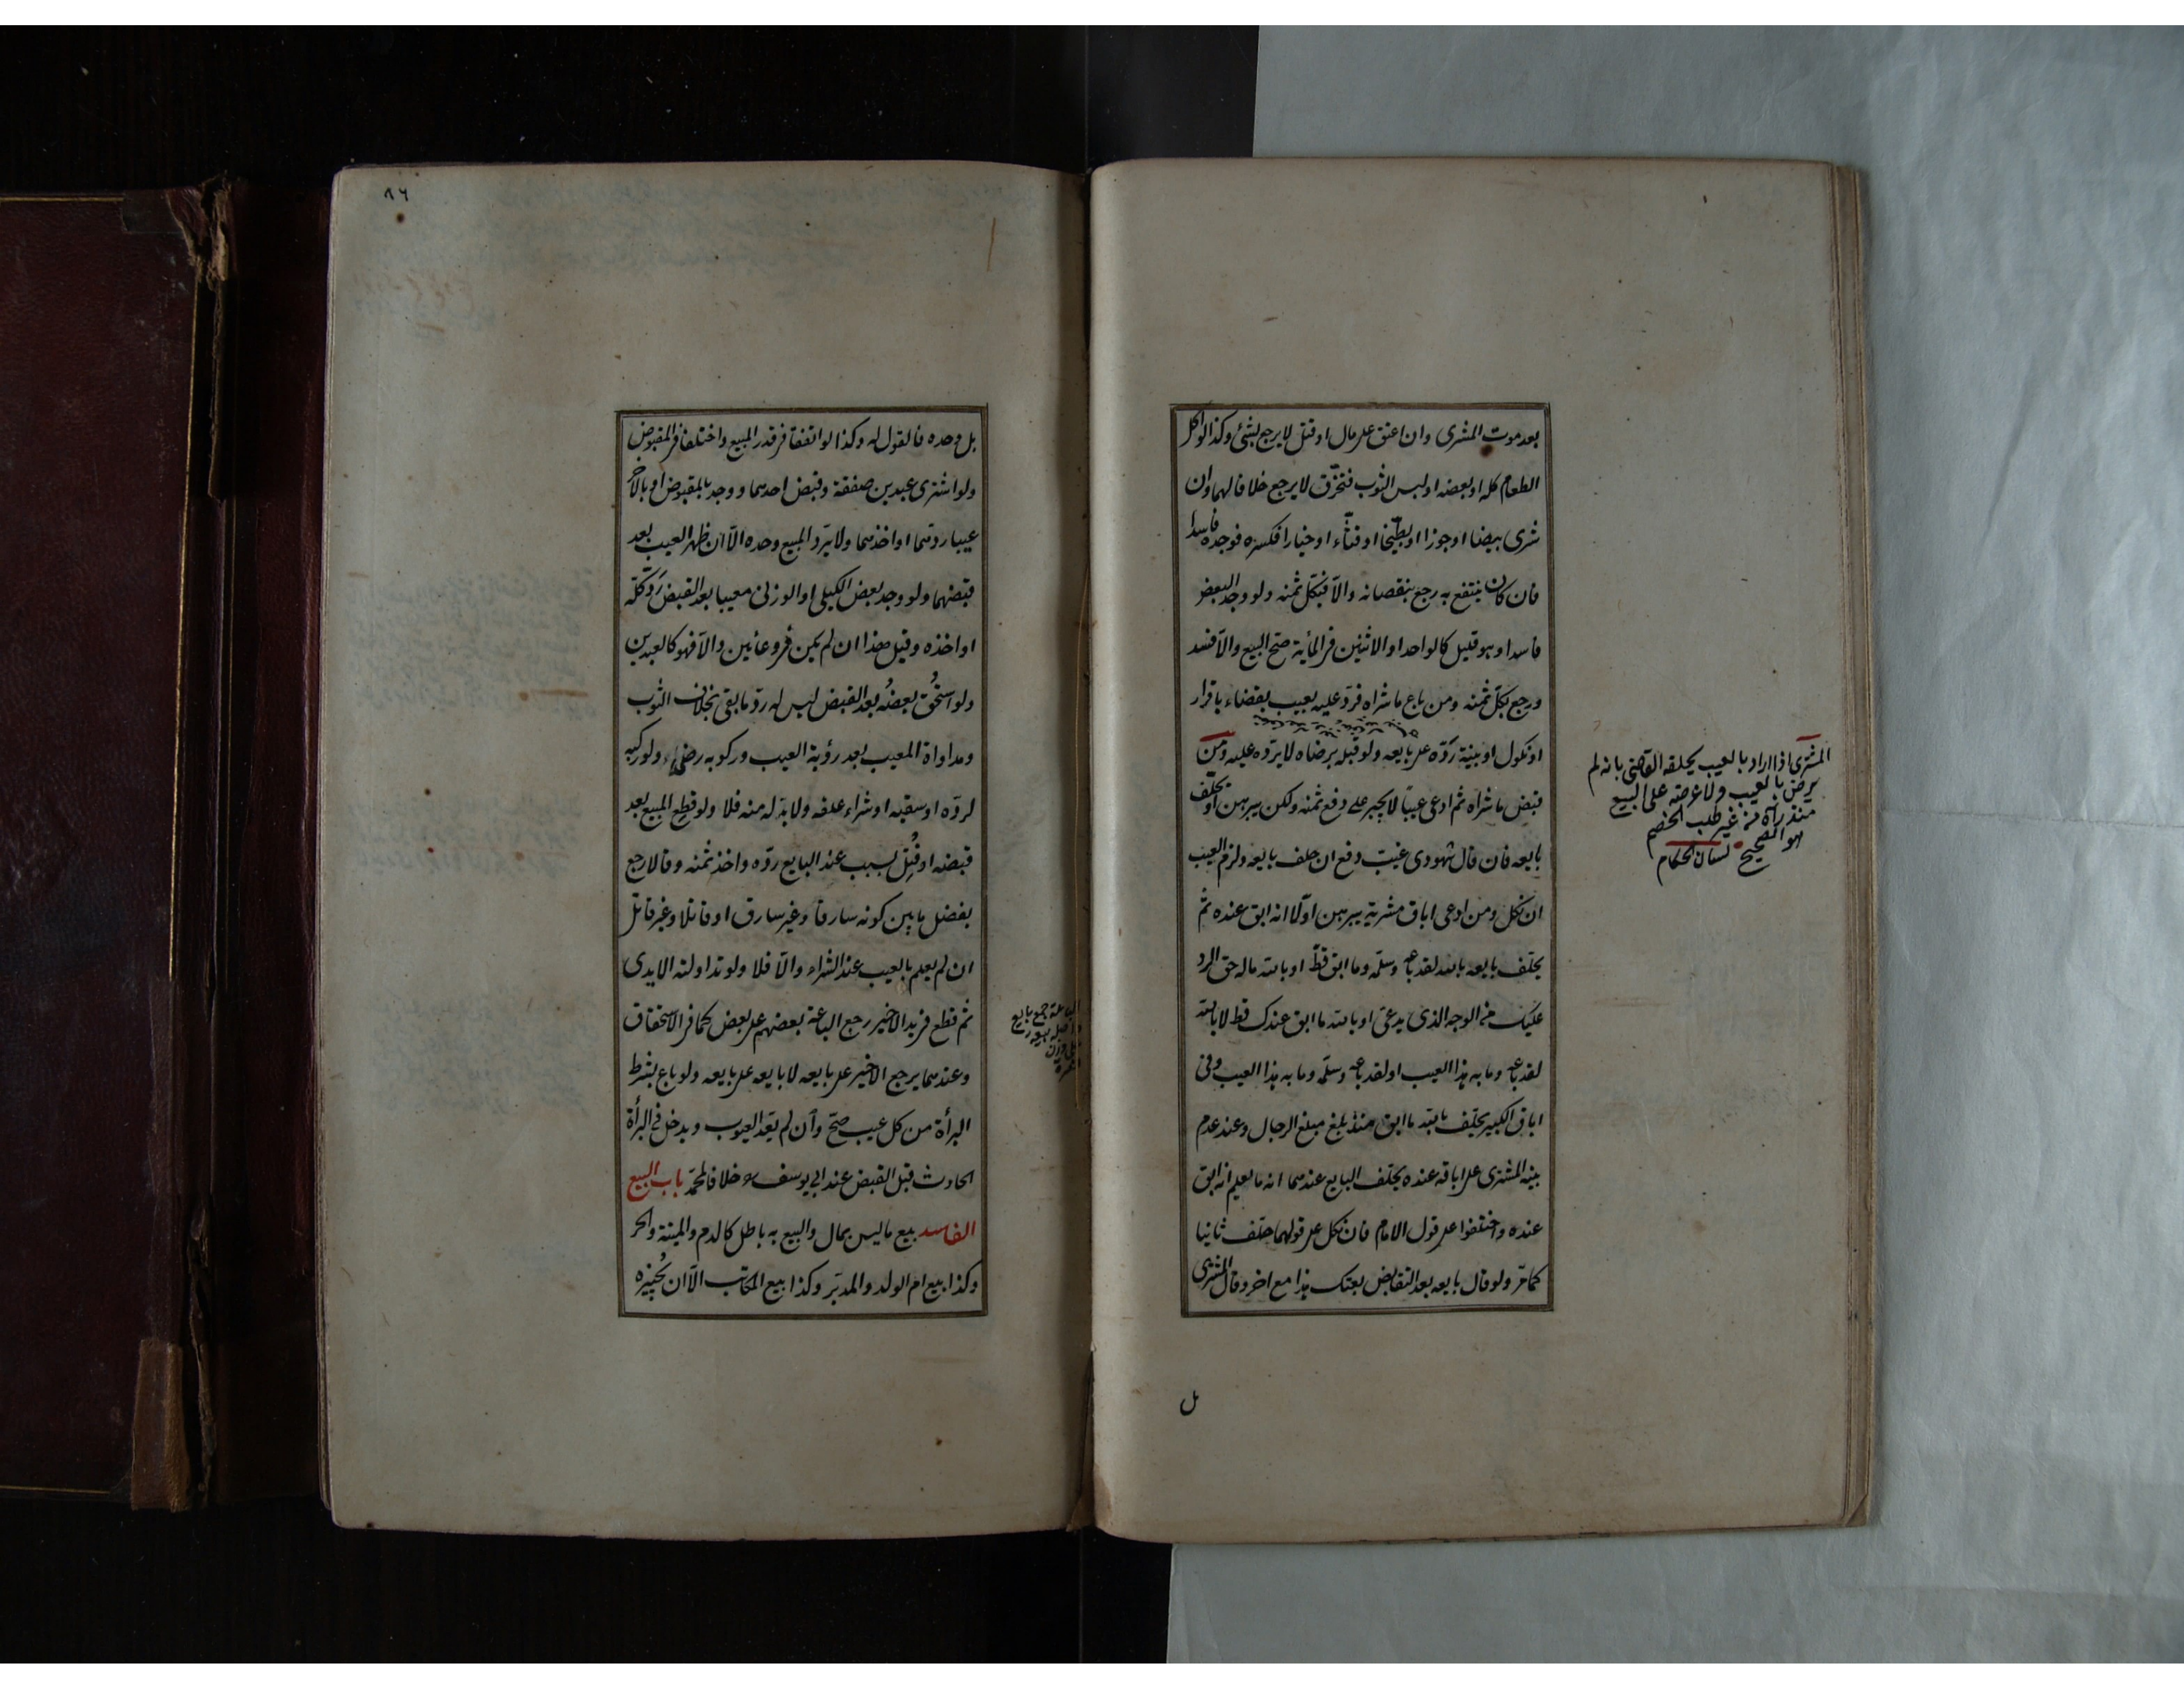 بعد موت المشترى وان اعتق على مال او قتل لا يرجع بشئ وكذا لو اكل
الطعام كله او بعضه او لبس الثوب فتخرّق لا يرجع خلافا لهما وان
شرى بيضا او جوزا او بطّيخا او قثّاء او خيارا فكسره فوجده فاسدا
فان كان ينتفع به رجع بنقصانه والّا فبكلّ ثمنه ولو وجد البعض
فاسدا وهو قليل كالواحد او الاثنين فى المأية صحّ البيع والّا فسد
ورجع بكلّ ثمنه ومن باع ما شراه فردّ عليه بعيب بقضاء باقرار
او نكول او بينة ردّه على بايعه ولو قبله برضاه لا يردّه عليه ومن
قبض ما شراه ثم ادعى عيبًا لا يجبر على دفع ثمنه ولكن يبرهن او يحلّف
بايعه فان قال شهودى غيّب دفع ان حلف بايعه ولزم العيب
ان نكل ومن ادعى اباق مشريّه يبرهن اوّلا انه ابق عنده ثم
يحلّف بايعه بالله لقد باعه وسلّمه وما ابق قطّ او بالله ماله حق الرد
عليك من الوجه الذى يدعى او بالله ما ابق عندك قط لا بالله
لقد باعه وما به هذا العيب او لقد باعه وسلّمه وما به هذا العيب وفى
اباق الكبير يحلّف بالله ما ابق منذ بلغ مبلغ الرجال وعند عدم
بينة المشترى على اباقه عنده يحلّف البايع عندهما انه ما يعلم انه ابق
عنده واختلفوا على قول الامام فان نكل على قولهما حلّف ثانيا
كما مرّ ولو قال بايعه بعد التقابض بعتك هذا مع اخر وقال المشترى
المشترى اذا اراد بالعيب يحلفه القاضى بانه لم
يرض بالعيب ولا عرضه على البيع
منذ رآه من غير طلب الخصم
هو الصحيح لسان الحكام
ل
٨٦
بل وحده فالقول له وكذا لو اتفقا فى قدر المبيع واختلفا فى المقبوض
ولو اشترى عبدين صفقة وقبض احدهما ووجد بالمقبوض او بالاخر
عيبا ردّهما او اخذهما ولا يردّ المبيع وحده الّا ان ظهر العيب بعد
قبضهما ولو وجد بعض الكيلى او الوزنى معيبا بعد القبض ردّ كلّه
او اخذه وقيل هذا ان لم يكن فى وعائين والّا فهو كالعبدين
ولو استُحقّ بعضُه بعد القبض ليس له ردّ ما بقى بخلاف الثوب
ومداواة المعيب بعد رؤية العيب وركوبه رضاء ولو ركبه
لردّه او سقيه او شراء علفه ولا بدّ له منه فلا ولو قطع المبيع بعد
قبضه او قُتِل بسبب عند البايع ردّه واخذ ثمنه وقالا رجع
بفضل ما بين كونه سارقا وغير سارق او قاتلا وغير قاتل
ان لم يعلم بالعيب عند الشراء والّا فلا ولو تداولته الايدى
ثم قطع فى يد الاخير رجع الباعة بعضهم على بعض كما فى الاستحقاق
وعندهما يرجع الاخير على بايعه لا بايعه على بايعه ولو باع بشرط
البرأة من كل عيب صحّ وان لم يعد العيوب ويدخل فى البرأة
الحادث قبل القبض عند ابى يوسف خلافا لمحمّد باب البيع
الفاسد بيع ما ليس بمال والبيع به باطل كالدم والميتة والحر
وكذا بيع ام الولد والمدبّر وكذا بيع المكاتب الّا ان يُجيزه
الباعة جمع بايع